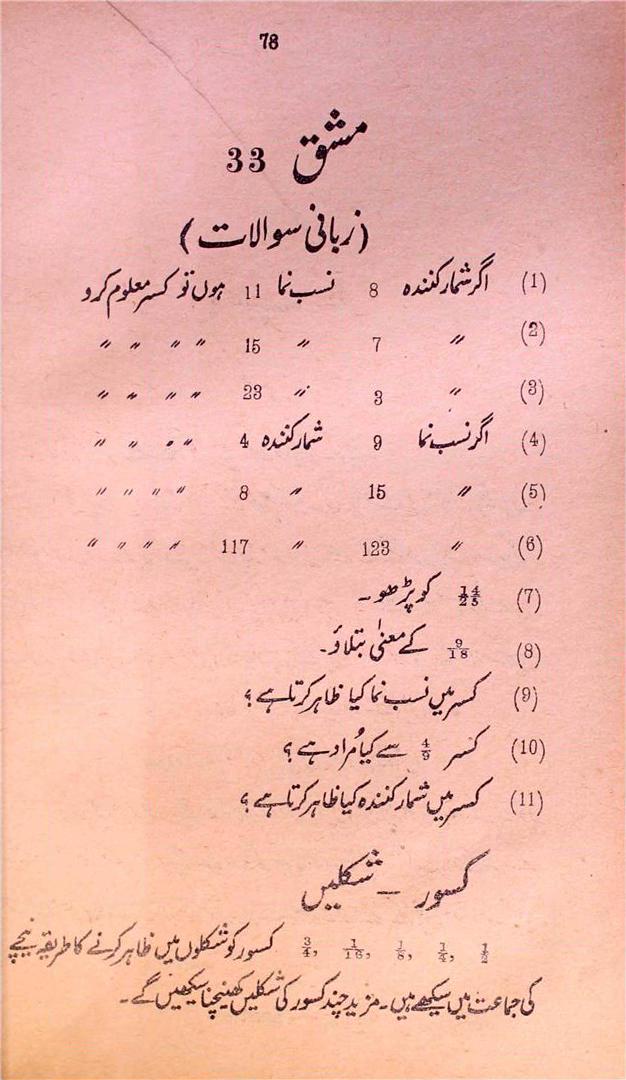 78
مشق 33
(زبانی سوالات)
(1) اگر شمار کنندہ 8 نسب نما 11 ہوں تو کسر معلوم کرو
(2) 〃 7 〃 15 〃 〃 〃 〃
(3) 〃 3 〃 23 〃 〃 〃 〃
(4) اگر نسب نما 9 شمار کنندہ 4 〃 〃 〃 〃
(5) 〃 15 〃 8 〃 〃 〃 〃
(6) 〃 123 〃 117 〃 〃 〃 〃
(7) 14/25 کو پڑھو۔
(8) 9/18 کے معنیٰ بتلاؤ۔
(9) کسر میں نسب نما کیا ظاہر کرتا ہے ؟
(10) کسر 4/9 سے کیا مُراد ہے ؟
(11) کسر میں شمار کنندہ کیا ظاہر کرتا ہے ؟
کسور ـ شکلیں
1/2, 1/4, 1/8, 1/16, 3/4 کسور کو شکلوں میں ظاہر کرنے کا طریقہ نیچے
کی جماعت میں سیکھے ہیں۔ مزید چند کسور کی شکلیں کھینچنا سیکھیں گے۔